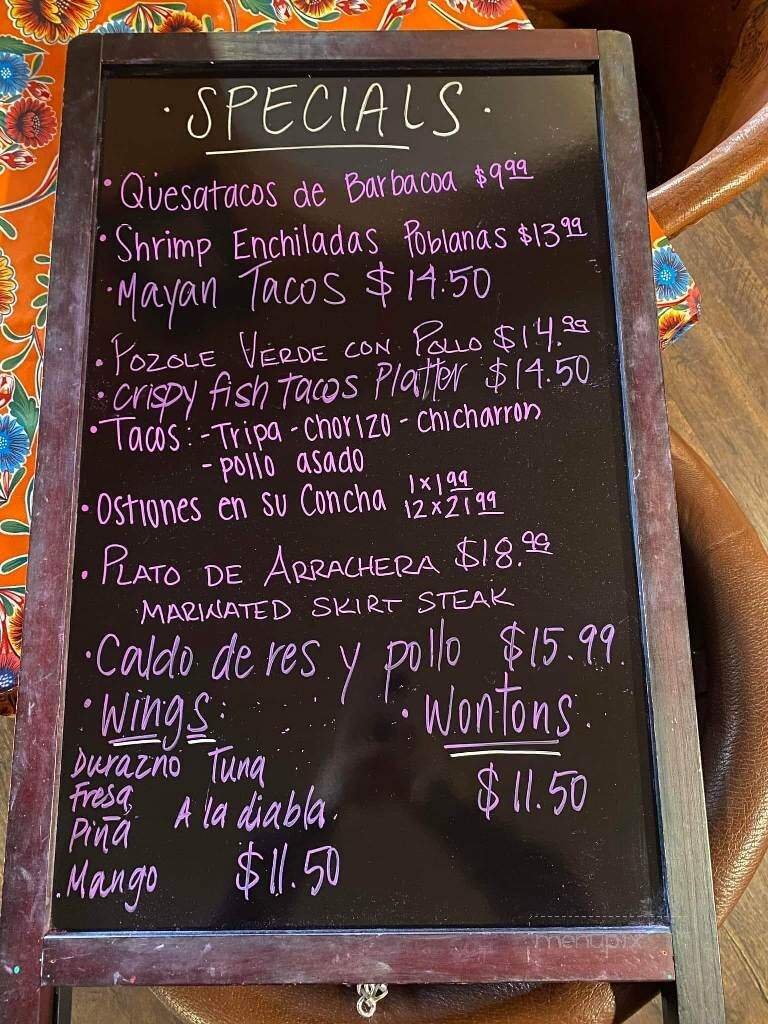 · SPECIALS ·
· Quesatacos de Barbacoa $9.99
· Shrimp Enchiladas Poblanas $13.99
· Mayan Tacos $14.50
· POZOLE VERDE CON POLLO $14.99
· crispy fish tacos Platter $14.50
· Tacos: - Tripa - chorizo - chicharron
- pollo asado
· Ostiones en su Concha 1 x 1.99
12 x 21.99
· PLATO DE ARRACHERA $18.99
MARINATED SKIRT STEAK
· Caldo de res y pollo $15.99.
· Wings: · Wontons.
Durazno Tuna
Fresa
$11.50
A la diabla.
Piña
. Mango $11.50
menupix